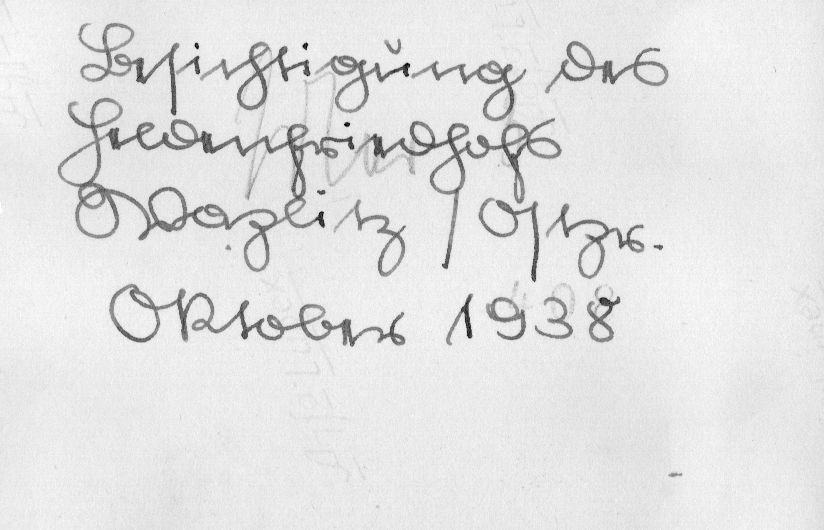 Besichtigung des
Heldenfriedhofs
Waplitz / Ostpr.
Oktober 1938